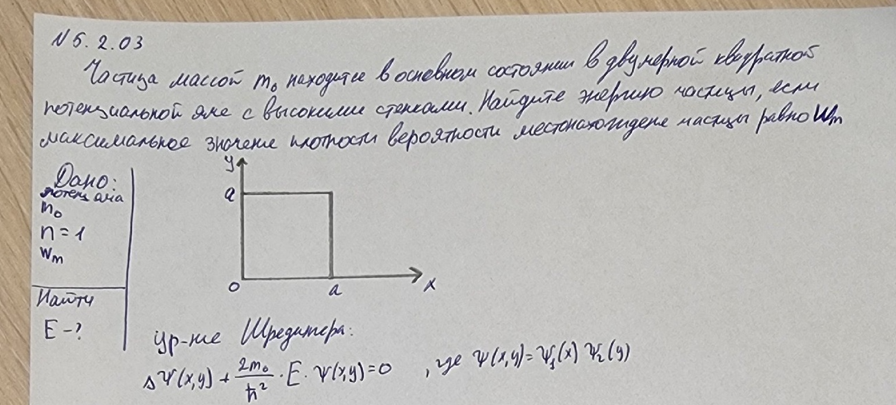 N 5.2.03
Частица массой m₀ находится в основном состоянии в двумерной квадратной
потенциальной яме с высокими стенками. Найдите энергию частицы, если
максимальное значение плотности вероятности местонахождене частицы равно Wm
y
Дано:
потенц яма
a
m₀
n = 1
Wm
0
a
x
Найти
E - ?
Ур-ние Шредингера:
ΔΨ(x,y) + 2m₀/ħ² · E · Ψ(x,y) = 0 , где Ψ(x,y) = Ψ₁(x) Ψ₂(y)